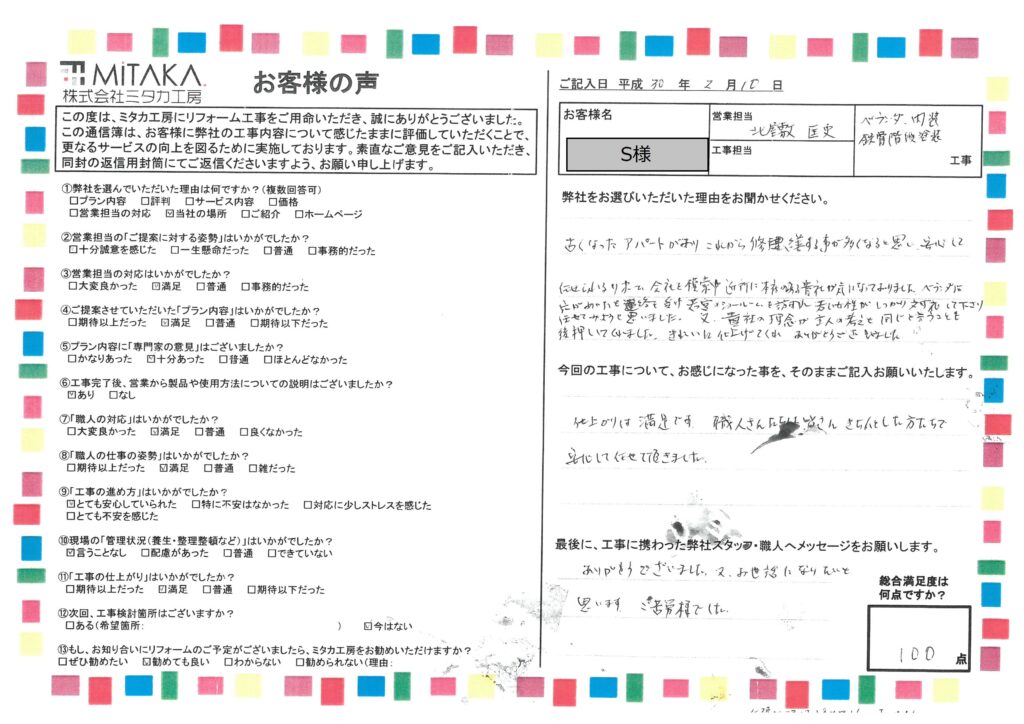 MiTAKA
株式会社ミタカ工房
お客様の声
この度は、ミタカ工房にリフォーム工事をご用命いただき、誠にありがとうございました。
この通信簿は、お客様に弊社の工事内容について感じたままに評価していただくことで、
更なるサービスの向上を図るために実施しております。素直なご意見をご記入いただき、
同封の返信用封筒にてご返信くださいますよう、お願い申し上げます。
①弊社を選んでいただいた理由は何ですか?(複数回答可)
□プラン内容 □評判 □サービス内容 □価格
□営業担当の対応 ☑当社の場所 □ご紹介 □ホームページ
②営業担当の「ご提案に対する姿勢」はいかがでしたか?
☑十分誠意を感じた □一生懸命だった □普通 □事務的だった
③営業担当の対応はいかがでしたか?
□大変良かった ☑満足 □普通 □事務的だった
④ご提案させていただいた「プラン内容」はいかがでしたか?
□期待以上だった ☑満足 □普通 □期待以下だった
⑤プラン内容に「専門家の意見」はございましたか?
□かなりあった ☑十分あった □普通 □ほとんどなかった
⑥工事完了後、営業から製品や使用方法についての説明はございましたか?
☑あり □なし
⑦「職人の対応」はいかがでしたか?
□大変良かった ☑満足 □普通 □良くなかった
⑧「職人の仕事の姿勢」はいかがでしたか?
□期待以上だった ☑満足 □普通 □雑だった
⑨「工事の進め方」はいかがでしたか?
☑とても安心していられた □特に不安はなかった □対応に少しストレスを感じた
□とても不安を感じた
⑩現場の「管理状況(養生・整理整頓など)」はいかがでしたか?
☑言うことなし □配慮があった □普通 □できていない
⑪「工事の仕上がり」はいかがでしたか?
□期待以上だった ☑満足 □普通 □期待以下だった
⑫次回、工事検討箇所はございますか?
□ある(希望箇所: ) ☑今はない
⑬もし、お知り合いにリフォームのご予定がございましたら、ミタカ工房をお勧めいただけますか?
□ぜひ勧めたい ☑勧めても良い □わからない □勧められない(理由:
ご記入日 平成 30 年 2 月 18 日
お客様名
S様
営業担当
北屋敷 匡史
工事担当
ベランダ 内装
鉄骨階段塗装
工事
弊社をお選びいただいた理由をお聞かせください。
古くなったアパートがあり これから修理する事が多くなると思い 安心して
任せられるリホーム会社を模索中 近所に 有る貴社が気になっておりました ベランダに
任せてみようと思いました。又、貴社の理念が主人の考えと同じと言うことも
後押してくれました。きれいに仕上げてくれ ありがとうございました
今回の工事について、お感じになった事を、そのままご記入お願いいたします。
仕上がりは満足です 職人さんたちも皆さん きちんとした方たちで
安心して任せて頂きました。
最後に、工事に携わった弊社スタッフ・職人へメッセージをお願いします。
ありがとうございました。又、お世話になりたいと
思います ご苦労様でした。
総合満足度は
何点ですか?
100 点